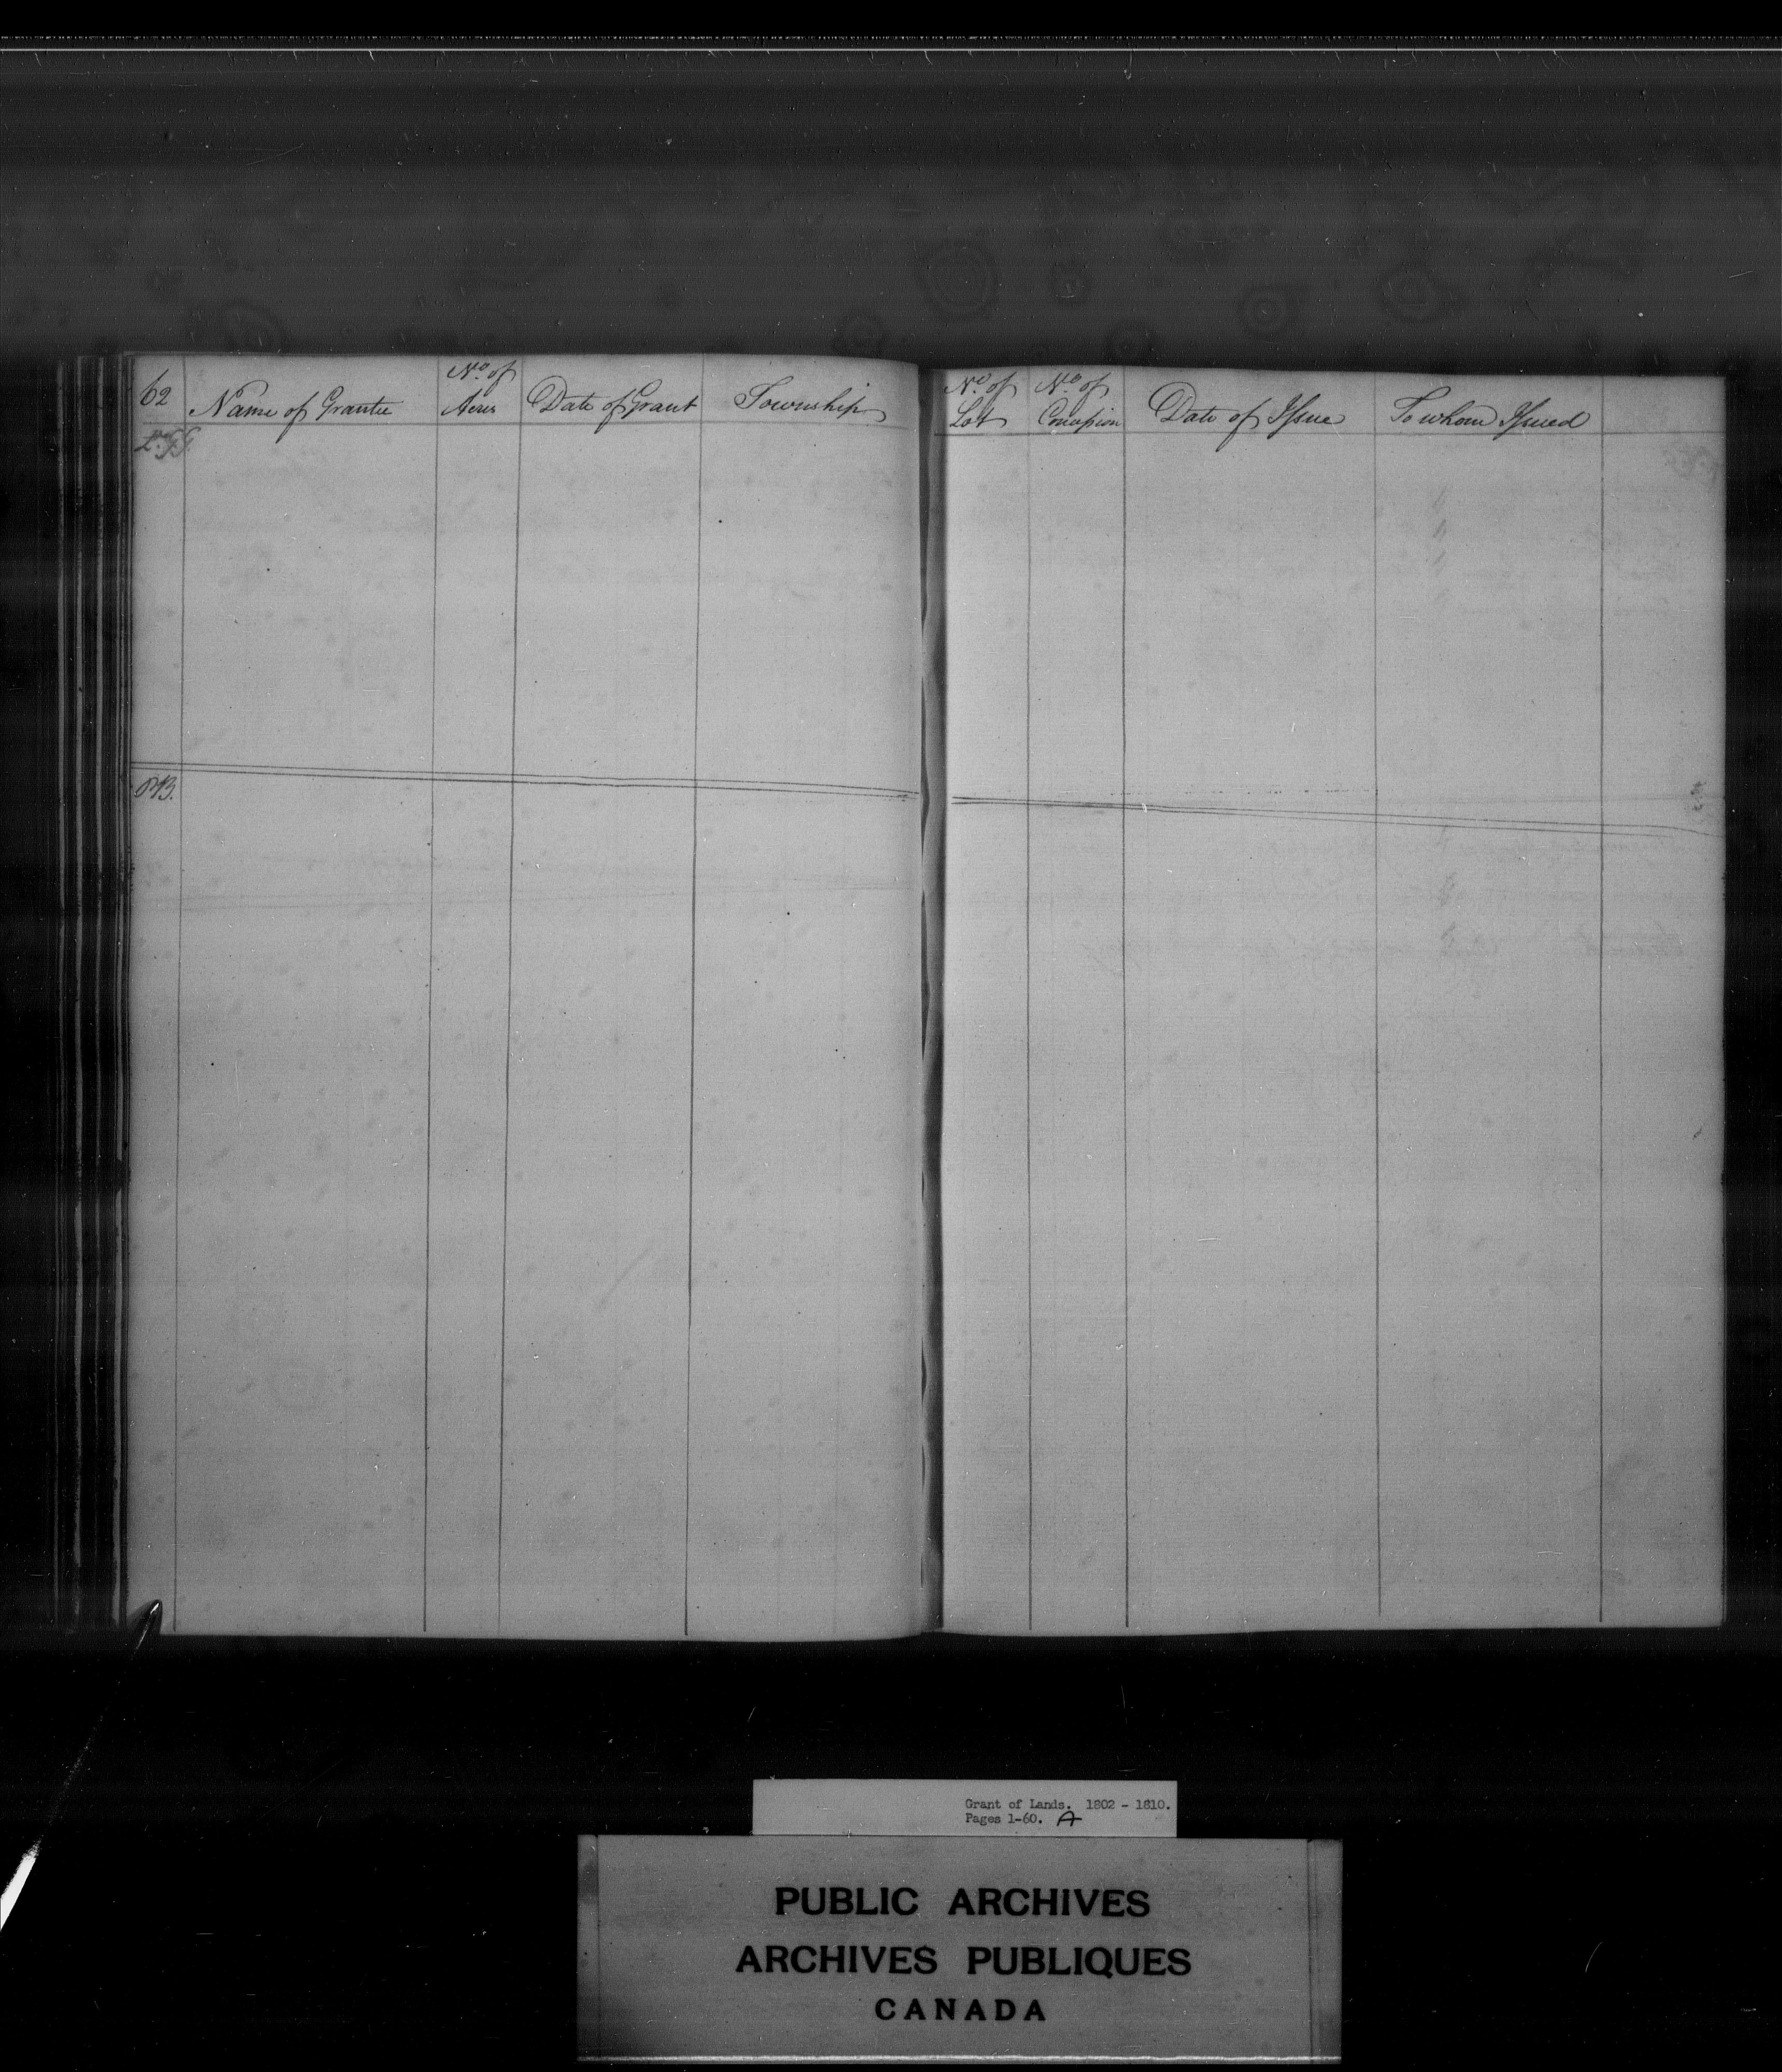 62
Name of Grantee
No. of
Acres
Date of Grant
Township
No. of
Lot
No. of
Concession
Date of Issue
To whom Issued
Grant of Lands. 1802 - 1810.
Pages 1-60. A
PUBLIC ARCHIVES
ARCHIVES PUBLIQUES
CANADA